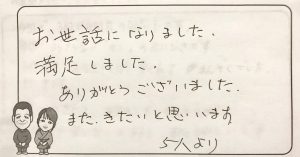 お世話になりました.
満足しました.
ありがとうございました.
また、きたいと思いいます.
5人より